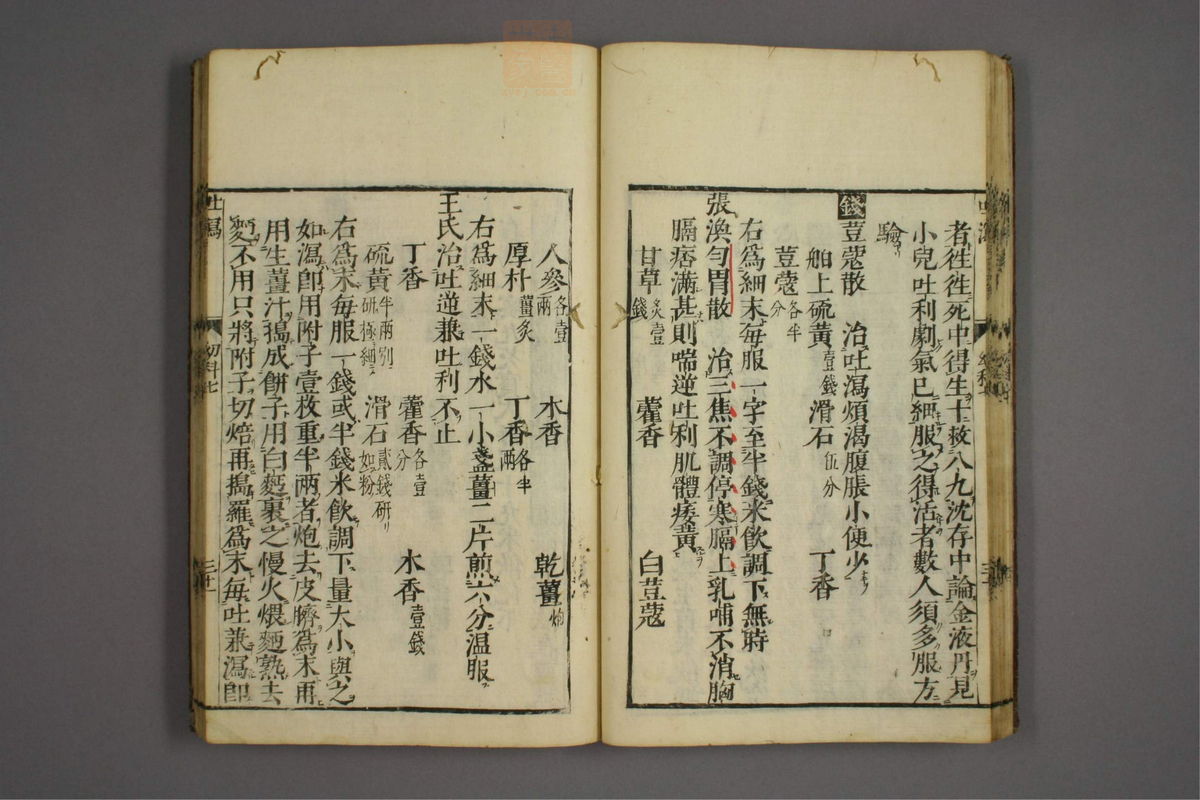 者徃徃死中得生十救八九沈存中論金液丹見
小兒吐利劇氣已絕服之得活者數人須多服方
驗
錢荳蔻散 治吐瀉煩渴腹脹小便少
舶上硫黃壹錢 滑石伍分 丁香
荳蔻各半分
右爲細末每服一字至半錢米飲調下無時
張渙勻胃散 治三焦不調停寒膈上乳哺不消胸
膈痞滿甚則喘逆吐利肌體痿黃
甘草炙壹錢 藿香 白荳蔻
人參各壹兩 木香 乾薑炮
厚朴薑炙 丁香各半兩
右爲細末一錢水一小盞薑二片煎六分温服
王氏治吐逆兼吐利不止
丁香 藿香各壹分 木香壹錢
硫黃半兩別研極細 滑石貳錢研如粉
右爲末每服一錢或半錢米飲調下量大小與之
如瀉卽用附子壹枚重半兩者炮去皮臍爲末再
用生薑汁搗成餅子用白麪裹之慢火煨麪熟去
麪不用只將附子切焙再搗羅爲末每吐兼瀉卽
吐瀉
幼科七
三十一